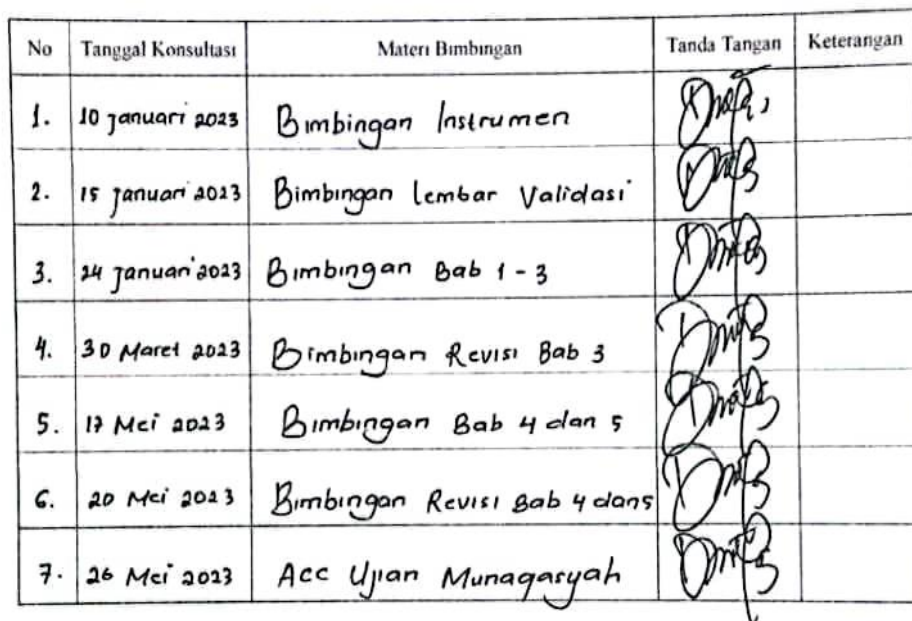 No Tanggal Konsultasi Materi Bimbingan Tanda Tangan Keterangan
1. 10 Januari 2023 Bimbingan Instrumen
2. 15 Januari 2023 Bimbingan lembar Validasi
3. 24 Januari 2023 Bimbingan Bab 1 - 3
4. 30 Maret 2023 Bimbingan Revisi Bab 3
5. 17 Mei 2023 Bimbingan Bab 4 dan 5
6. 20 Mei 2023 Bimbingan Revisi Bab 4 dan 5
7. 26 Mei 2023 Acc Ujian Munaqasyah